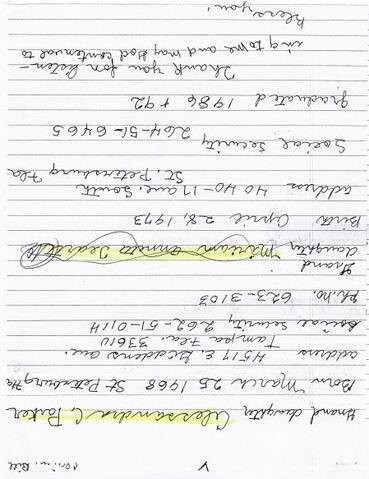 V
Grand daughter Alessandra C. Parker
Born March 25 1968 St Petersburg Fla
address 4511 E. Giddens ave.
Tampa Fla. 33610
Social Security 262-51-0114
Ph. no. 623-3103
Grand
daughter Miriam
Birth April 28, 1973
address 4040-17 ave. South
St. Petersburg Fla
Social Security
264-51-6465
graduated 1986 + 92
Thank you for listen-
ing to me and may God continual to
Bless you!